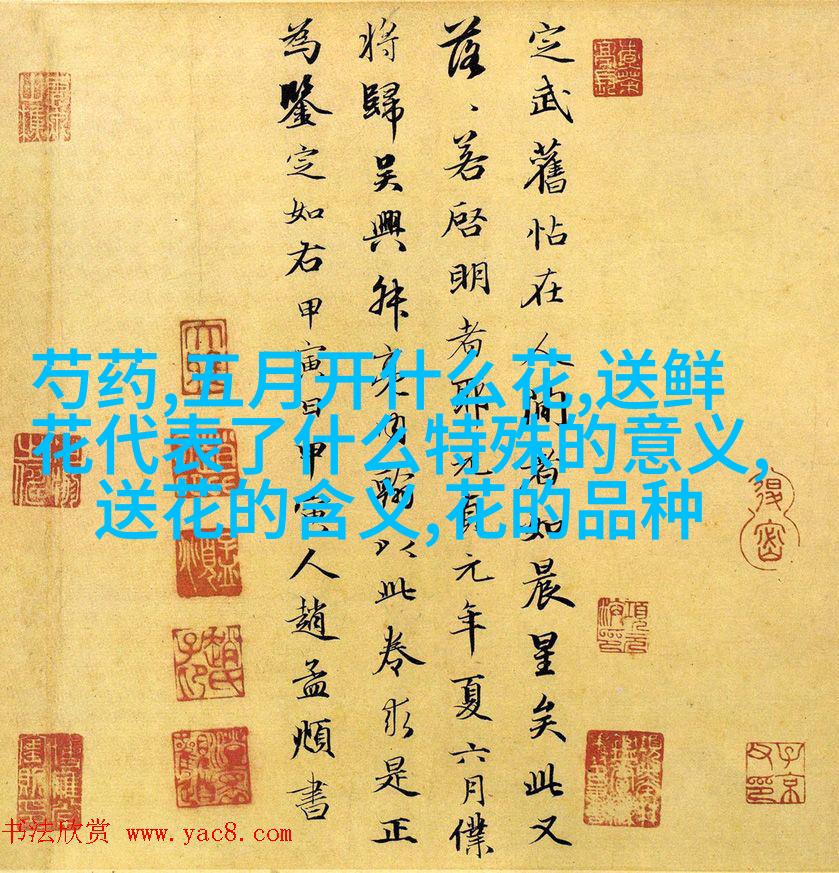 定武舊帖在人間者如晨星矣此又
落、若啓明者耶元貞元年夏六月僕
将歸吴興叔亮内翰以此卷求是正
為鑒定如右甲寅日甲寅人趙孟頫書
芍药,五月开什么花,送鲜
花代表了什么特殊的意义,
送花的含义,花的品种
书法欣赏 www.yac8.com